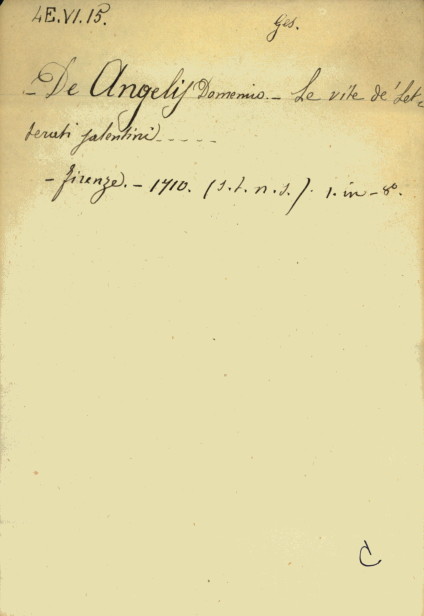 4E.VI.15.
Ges.
- De Angelis Domenico. - Le vite de' Let-
terati salentini - - - - -
- Firenze. - 1710. (s.t.n.s.). 1. in - 8°.
C